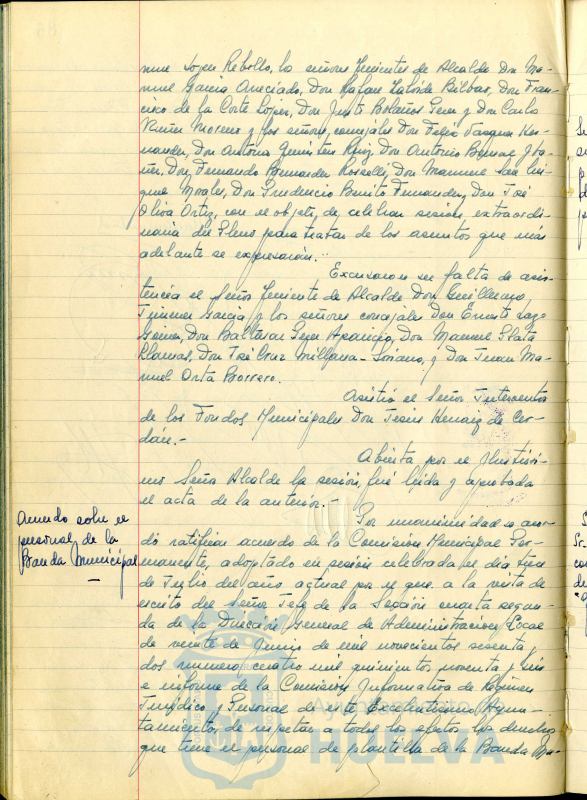 nuel López Rebollo, los señores Tenientes de Alcalde Don Ma-
nuel García Aneciado, Don Rafael Lahorde Bilbao, Don Fran-
cisco de la Corte López, Don Justo Bolaños Gera y Don Carlos
Núñez Moreno y los señores concejales Don Félix Vázquez Her-
nández, Don Antonio
Don Fernando Bermúdez Roselli, Don Manuel
Morales, Don Prudencio Benito Fernández, Don José
Oliva Ortiz, con el objeto de celebrar sesión extraordi-
naria del Pleno para tratar de los asuntos que más
adelante se expresarán.
Excusaron su falta de asis-
tencia el Señor Teniente de Alcalde Don Guillermo
Jiménez García y los señores concejales Don Ernesto Lazo
Don Baltasar Gera Aparicio, Don Manuel Plata
Llamas, Don José Cruz Millana-Soriano, y Don Juan Ma-
nuel Orta Borrero.
Asistió el Señor Interventor
de los Fondos Municipales Don Jesús Henaiz de Cer-
dán.-
Abierta por el Ilustrísi-
mo Señor Alcalde la sesión, fué leída y aprobada
el acta de la anterior.-
Acuerdo sobre el
personal de la
Banda Municipal
Por unanimidad se acor-
dó ratificar acuerdo de la Comisión Municipal Per-
manente, adoptado en sesión celebrada el día
de Julio del año actual por el que a la vista de
escrito del Señor Jefe de la Sección cuarta segun-
da de la Dirección General de Administración Local
de veinte de Junio de mil novecientos sesenta y
dos número ciento mil quinientos noventa y seis
e informe de la Comisión Informativa de Régimen
Jurídico y Personal de este Excelentísimo Ayun-
tamiento, de respetar a todos los efectos los derechos
que tiene el personal de plantilla de la Banda Mu-
HUELVA